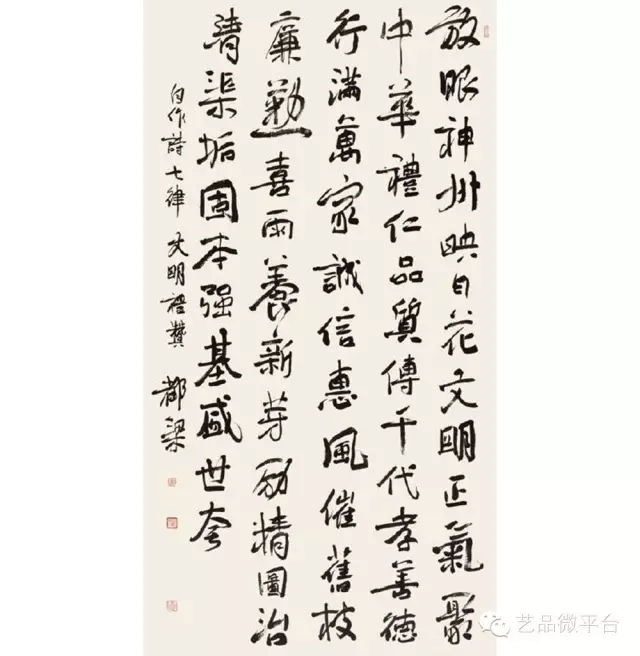 放眼神州映日花文明正氣聚
中華禮仁品質傳千代孝善德
行滿萬家誠信惠風催舊枝
廉勤喜雨養新芽励精圖治
清渠垢固本强基盛世夸
自作詩七律文明禮贊 都梁
艺品微平台